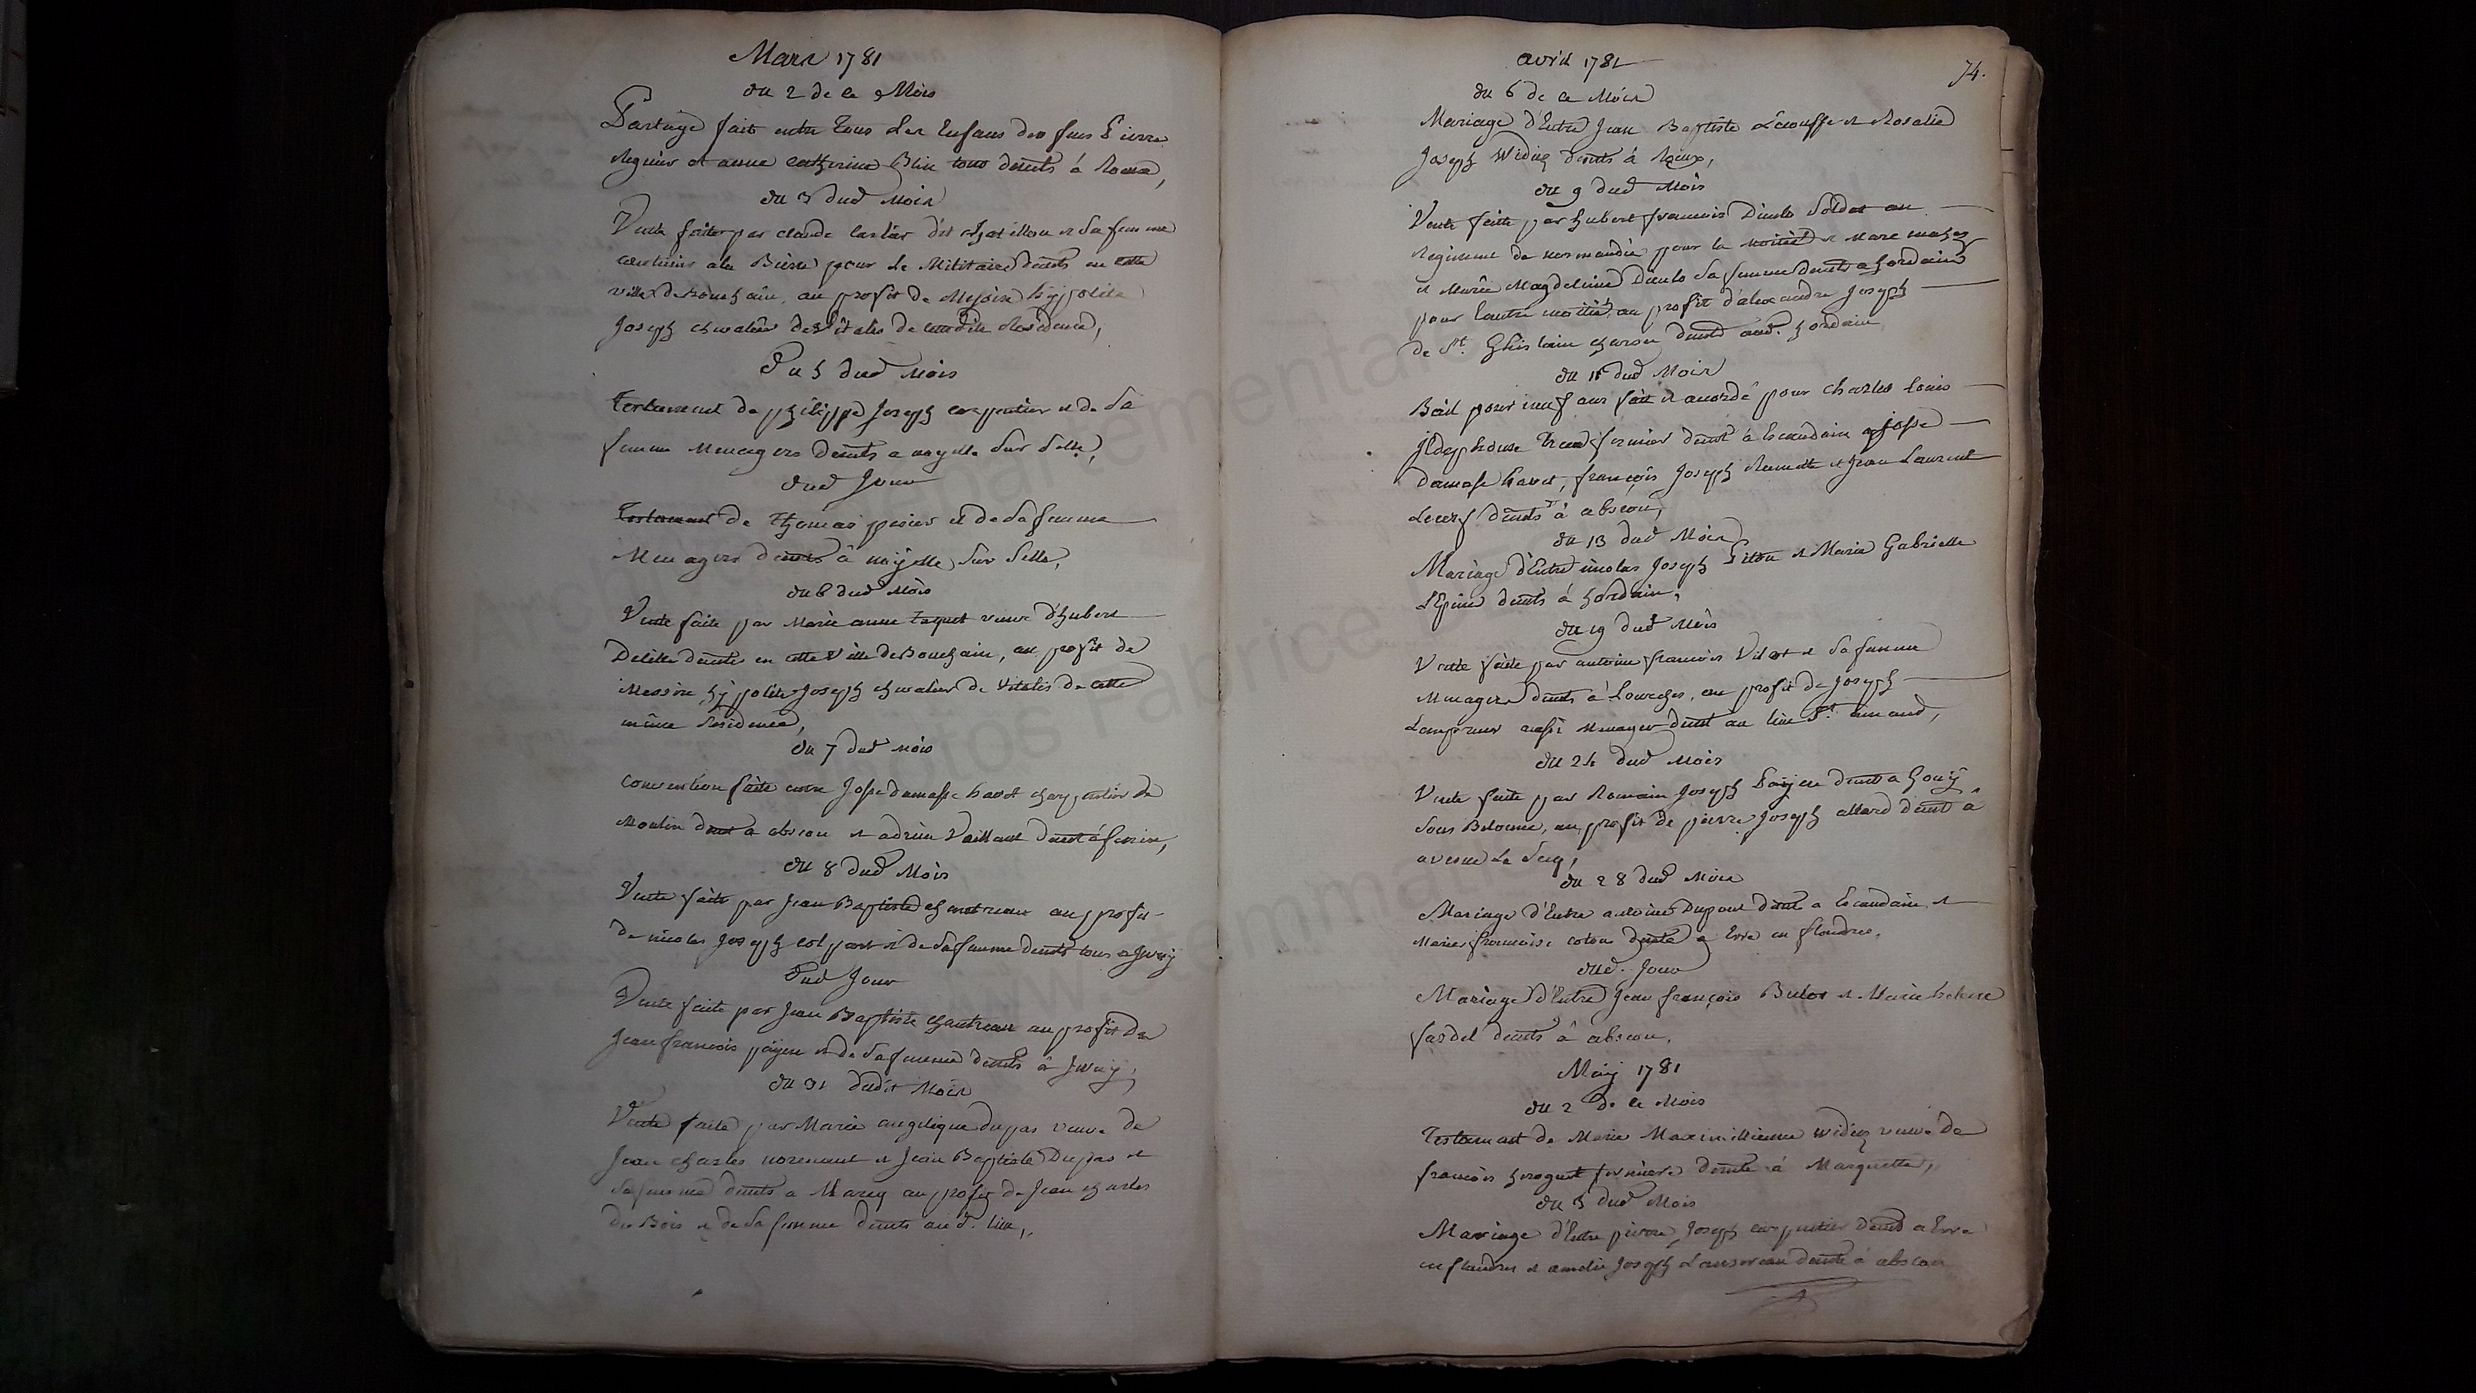 Mars 1781
du 2 de ce Mois
Partage fait entre tous les Enfans des feus Pierre
Regnier et anne catherine Blin tous demts à
du 3 dud Mois
Vente faite par claude dit chatillon et sa femme
à la Bierre pour le Militaire demts en cette
ville de Bouchain, au profit de Messire hÿppolite
Joseph chevalier de Vitalis de cette dite Residence,
Du 5 dud Mois
Testament de philippe Joseph carpentier et de sa
femme Menagers demts a noyelle sur selle,
dud Jour
Testament de Thomas et de sa femme
Menagers demts à noÿelle sur selle,
du 6 dud Mois
Vente faite par Marie anne taquet veuve d'hubert
Delille demte en cette Ville de Bouchain, au profit de
Messire hÿpolite Joseph chevalier de Vitalis de cette
même Residence,
du 7 dud Mois
convention faite entre Josse damasse havet charpentier de
Moulin demt a abscon et adrien Vaillant demt à fenin,
du 8 dud Mois
Vente faite par Jean Baptiste chantreau au profit
de nicolas Joseph colpart et de sa femme demts tous a Jwuÿ
Dud Jour
Vente faite par Jean Baptiste chantreau au profit de
Jean francois païjen et de sa femme demts à Jwuÿ,
du 31 dudit Mois
Vente faite par Marie angelique dupas veuve de
Jean charles et Jean Baptiste Dupas et
sa femme demts a Marcq au profit de Jean charles
du Bois et de sa femme demts aud. lieu,
avril 1781
74.
du 6 de ce Mois
Mariage d'Entre Jean Baptiste et Rosalie
Joseph Widiez demts à
du 9 dud Mois
Vente faite par hubert francois soldat au
Regiment de normandie pour la moitié et Marc
et Marie Magdeleine sa femme demts a hordain
pour l'autre moitié, au profit d'alexandre Joseph
de St. Ghislain charon demt aud. hordain
du 11 dud Mois
Bail pour neuf ans fait et accordé pour charles louis
Jldephonse fermier demt à Escaudain a josse
Damasse havet, françois Joseph Ramette et Jean Laurent
Lecerf demts à abscon,
du 13 dud Mois
Mariage d'Entre nicolas Joseph Pilon et Marie Gabrielle
L'Epine demts à hordain,
du 19 dud Mois
Vente faite par antoine francois et sa femme
Menagers demts à Lourches, au profit de Joseph
Lempereur aussi Menager demt au lieu St. amand,
du 24 dud Mois
Vente faite par Romain Joseph Païjen demt a Gouÿ
sous Belonne, au profit de pierre Joseph allard demt à
avesne Le secq,
du 28 dud Mois
Mariage d'Entre antoine Dupont demt a Escaudain et
Marie francoise demte a Erre en flandre,
dud. Jour
Mariage d'Entre Jean françois Bulot et Marie helene
fardel demts à abscon,
Maÿ 1781
du 2 de ce Mois
Testament de Marie Maximillienne widiez veuve de
francois fermiere demte à Marquette,
du 3 dud Mois
Mariage d'Entre pierre Joseph carpentier demt a Erre
en flandres et amelie Joseph demte à abscon